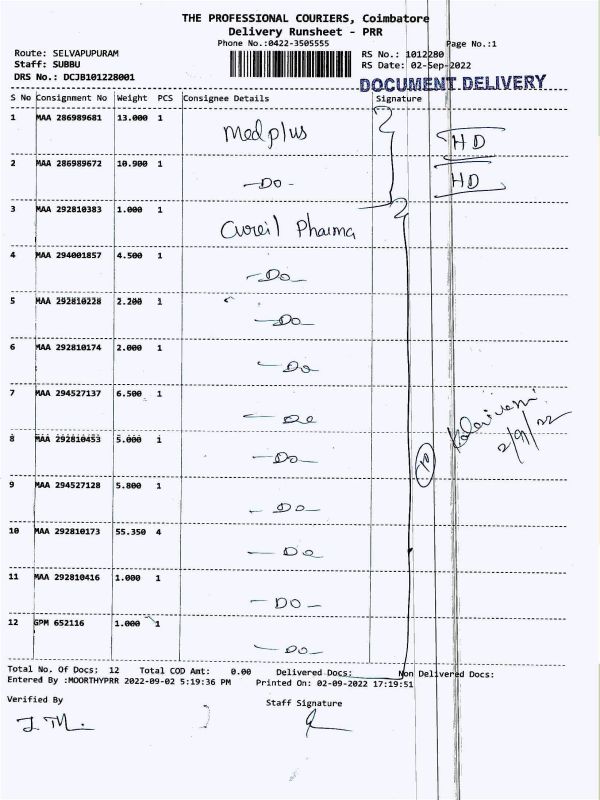 THE PROFESSIONAL COURIERS, Coimbatore
Delivery Runsheet - PRR
Phone No.:0422-3505555
Page No.:1
Route: SELVAPUPURAM
RS No.: 1012280
Staff: SUBBU
RS Date: 02-Sep-2022
DRS No.: DCJB101228001
DOCUMENT DELIVERY
S No Consignment No Weight PCS Consignee Details Signature
1 MAA 286989681 13.000 1 Medplus HD
2 MAA 286989672 10.900 1 -Do- HD
3 MAA 292810383 1.000 1 Cureil Pharma
4 MAA 294001857 4.500 1 -Do-
5 MAA 292810228 2.200 1 -Do-
6 MAA 292810174 2.000 1 -Do-
7 MAA 294527137 6.500 1 -Do-
8 MAA 292810453 5.000 1 -Do-
2/9/22
9 MAA 294527128 5.800 1 -Do-
10 MAA 292810173 55.350 4 -Do-
11 MAA 292810416 1.000 1 -Do-
12 GPM 652116 1.000 1 -Do-
Total No. Of Docs: 12 Total COD Amt: 0.00 Delivered Docs: Non Delivered Docs:
Entered By :MOORTHYPRR 2022-09-02 5:19:36 PM Printed On: 02-09-2022 17:19:51
Verified By
Staff Signature